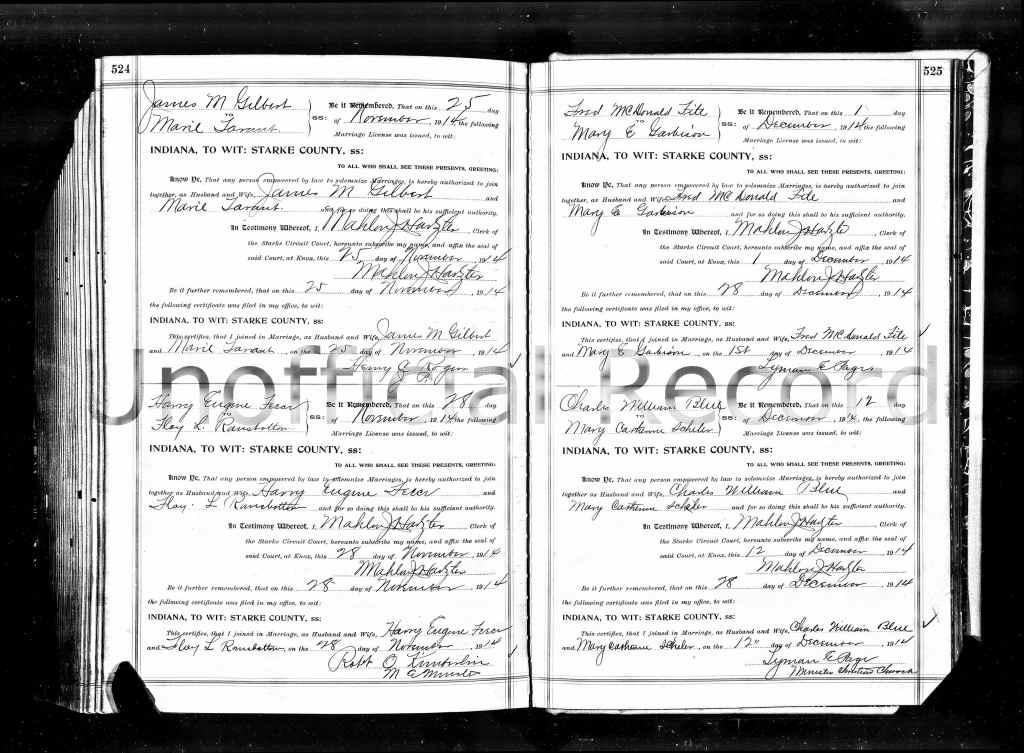 524
James M Gilbert
to
Marie Tarant
ss:
Be it Remembered, That on this 25 day
of November 1914, the following
Marriage License was issued, to wit:
INDIANA, TO WIT: STARKE COUNTY, ss:
TO ALL WHO SHALL SEE THESE PRESENTS, GREETING:
Know Ye, That any person empowered by law to solemnize Marriages, is hereby authorized to join
together, as Husband and Wife, James M Gilbert and
Marie Tarant and for so doing this shall be his sufficient authority.
In Testimony Whereof, I, Mahlon J Hartzler, Clerk of
the Starke Circuit Court, hereunto subscribe my name, and affix the seal of
said Court, at Knox, this 25 day of November, 1914
Mahlon J Hartzler
Be it further remembered, that on this 25 day of November, 1914
the following certificate was filed in my office, to wit:
INDIANA, TO WIT: STARKE COUNTY, ss:
This certifies, that I joined in Marriage, as Husband and Wife, James M Gilbert
and Marie Tarant, on the 25 day of November 1914
Henry C Rogers
Unofficial Record
Harry Eugene Fecer
to
Floy L. Ransbottom
ss:
Be it Remembered, That on this 28 day
of November 1914, the following
Marriage License was issued, to wit:
INDIANA, TO WIT: STARKE COUNTY, ss:
TO ALL WHO SHALL SEE THESE PRESENTS, GREETING:
Know Ye, That any person empowered by law to solemnize Marriages, is hereby authorized to join
together as Husband and Wife, Harry Eugene Fecer and
Floy L Ransbottom and for so doing this shall be his sufficient authority.
In Testimony Whereof, I, Mahlon J Hartzler Clerk of
the Starke Circuit Court, hereunto subscribe my name, and affix the seal of
said Court, at Knox, this 28 day of November, 1914
Mahlon J Hartzler
Be it further remembered, that on this 28 day of November, 1914
the following certificate was filed in my office, to wit:
INDIANA, TO WIT: STARKE COUNTY, ss:
This certifies, that I joined in Marriage, as Husband and Wife, Harry Eugene Fecer
and Floy L Ransbottom, on the 28 day of November 1914
Robt O Kimberlin
M E Minister
525
Fred McDonald Fite
to
Mary E Garbison
ss:
Be it Remembered, That on this 1 day
of December 1914, the following
Marriage License was issued, to wit:
INDIANA, TO WIT: STARKE COUNTY, ss:
TO ALL WHO SHALL SEE THESE PRESENTS, GREETING:
Know Ye, That any person empowered by law to solemnize Marriages, is hereby authorized to join
together, as Husband and Wife, Fred McDonald Fite and
Mary E Garbison and for so doing this shall be his sufficient authority.
In Testimony Whereof, I, Mahlon J Hartzler, Clerk of
the Starke Circuit Court, hereunto subscribe my name, and affix the seal of
said Court, at Knox, this 1 day of December, 1914
Mahlon J Hartzler
Be it further remembered, that on this 28 day of December, 1914
the following certificate was filed in my office, to wit:
INDIANA, TO WIT: STARKE COUNTY, ss:
This certifies, that I joined in Marriage, as Husband and Wife, Fred McDonald Fite
and Mary E Garbison, on the 1st day of December 1914
Lyman E Page
Charles William Blue
to
Mary Catherine Scheler
ss:
Be it Remembered, That on this 12 day
of December 1914, the following
Marriage License was issued, to wit:
INDIANA, TO WIT: STARKE COUNTY, ss:
TO ALL WHO SHALL SEE THESE PRESENTS, GREETING:
Know Ye, That any person empowered by law to solemnize Marriages, is hereby authorized to join
together, as Husband and Wife, Charles William Blue and
Mary Catherine Scheler and for so doing this shall be his sufficient authority.
In Testimony Whereof, I, Mahlon J Hartzler, Clerk of
the Starke Circuit Court, hereunto subscribe my name, and affix the seal of
said Court, at Knox, this 12 day of December, 1914
Mahlon J Hartzler
Be it further remembered, that on this 28 day of December, 1914
the following certificate was filed in my office, to wit:
INDIANA, TO WIT: STARKE COUNTY, ss:
This certifies, that I joined in Marriage, as Husband and Wife, Charles William Blue
and Mary Catherine Scheler, on the 12" day of December 1914
Lyman E Page
Minister Christian Church